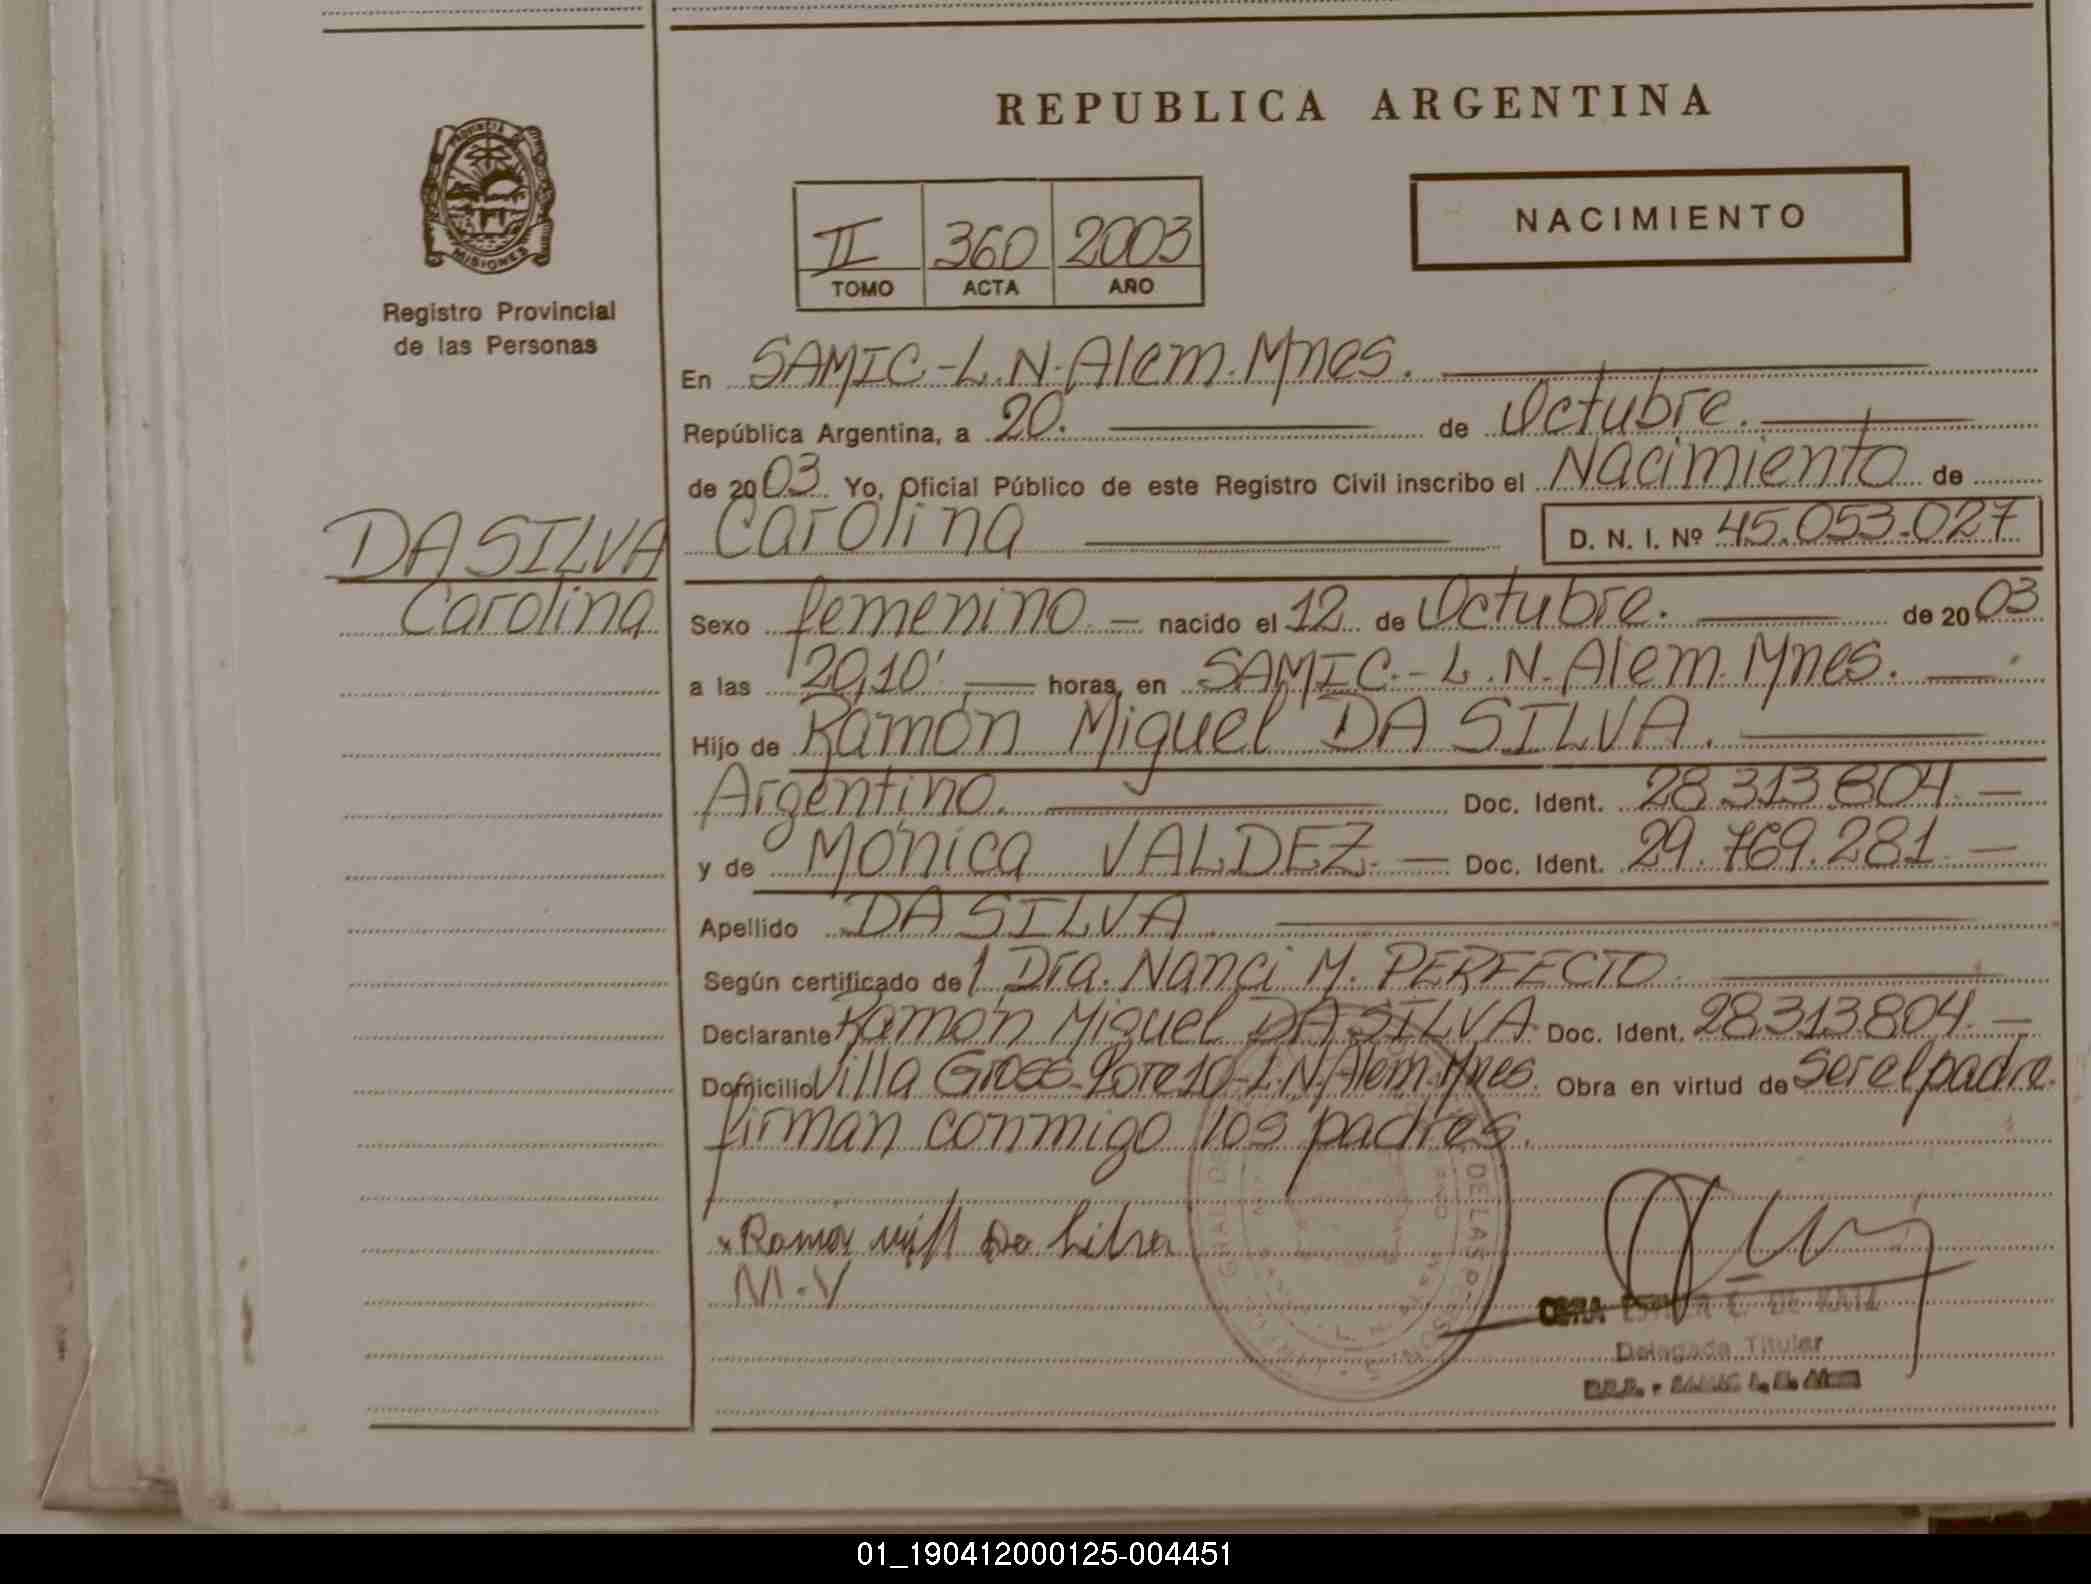 REPUBLICA ARGENTINA
PROVINCIA DE
MISIONES
Registro Provincial
de las Personas
II 360 2003
TOMO ACTA AÑO
NACIMIENTO
En SAMIC-L.N.Alem.Mnes.
República Argentina, a 20. de Octubre.
de 2003 Yo, Oficial Público de este Registro Civil inscribo el Nacimiento de
DA SILVA
Carolina
Carolina D. N. I. Nº 45.053.027
Sexo femenino nacido el 12 de Octubre. de 2003
a las 20,10' horas, en SAMIC.-L.N.Alem.Mnes.
Hijo de Ramón Miguel DA SILVA.
Argentino. Doc. Ident. 28.313.804.
y de Mónica VALDEZ. Doc. Ident. 29.769.281.
Apellido DA SILVA.
Según certificado de Dra. Nanci M. PERFECTO.
Declarante Ramón Miguel DA SILVA. Doc. Ident. 28.313.804.
Domicilio Villa Gross-Lote 10-L.N.Alem.Mnes. Obra en virtud de ser el padre.
firman conmigo los padres.
Da Silva
M.V
DE LAS
DE
Delegada Titular
01_190412000125-004451